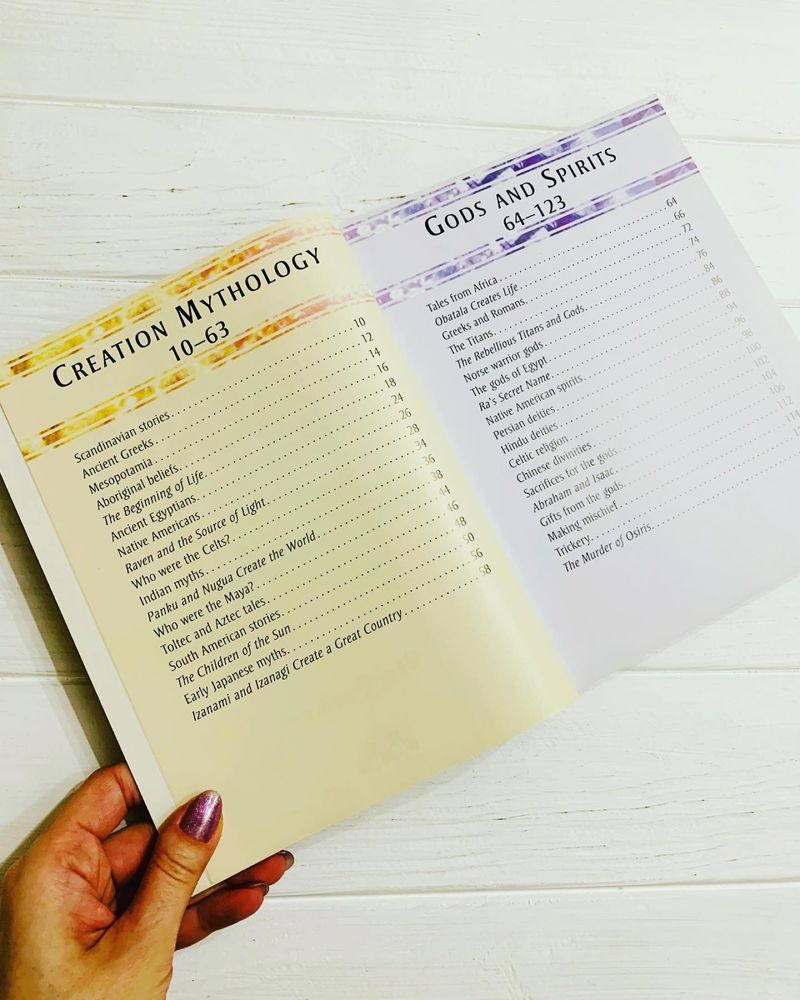 CREATION MYTHOLOGY
10–63
Scandinavian stories 10
Ancient Greeks 12
Mesopotamia 14
Aboriginal beliefs 16
The Beginning of Life 18
Ancient Egyptians 24
Native Americans 26
Raven and the Source of Light 28
Who were the Celts? 34
Indian myths 36
Panku and Nugua Create the World 38
Who were the Maya? 44
Toltec and Aztec tales 46
South American stories 48
The Children of the Sun 50
Early Japanese myths 56
Izanami and Izanagi Create a Great Country 58
GODS AND SPIRITS
64–123
Tales from Africa 64
Obatala Creates Life 66
Greeks and Romans 72
The Titans 74
The Rebellious Titans and Gods 76
Norse warrior gods 84
The gods of Egypt 86
Ra's Secret Name 88
Native American spirits 94
Persian deities 96
Hindu deities 98
Celtic religion 100
Chinese divinities 102
Sacrifices for the gods 104
Abraham and Isaac 106
Gifts from the gods 112
Making mischief 114
Trickery
The Murder of Osiris